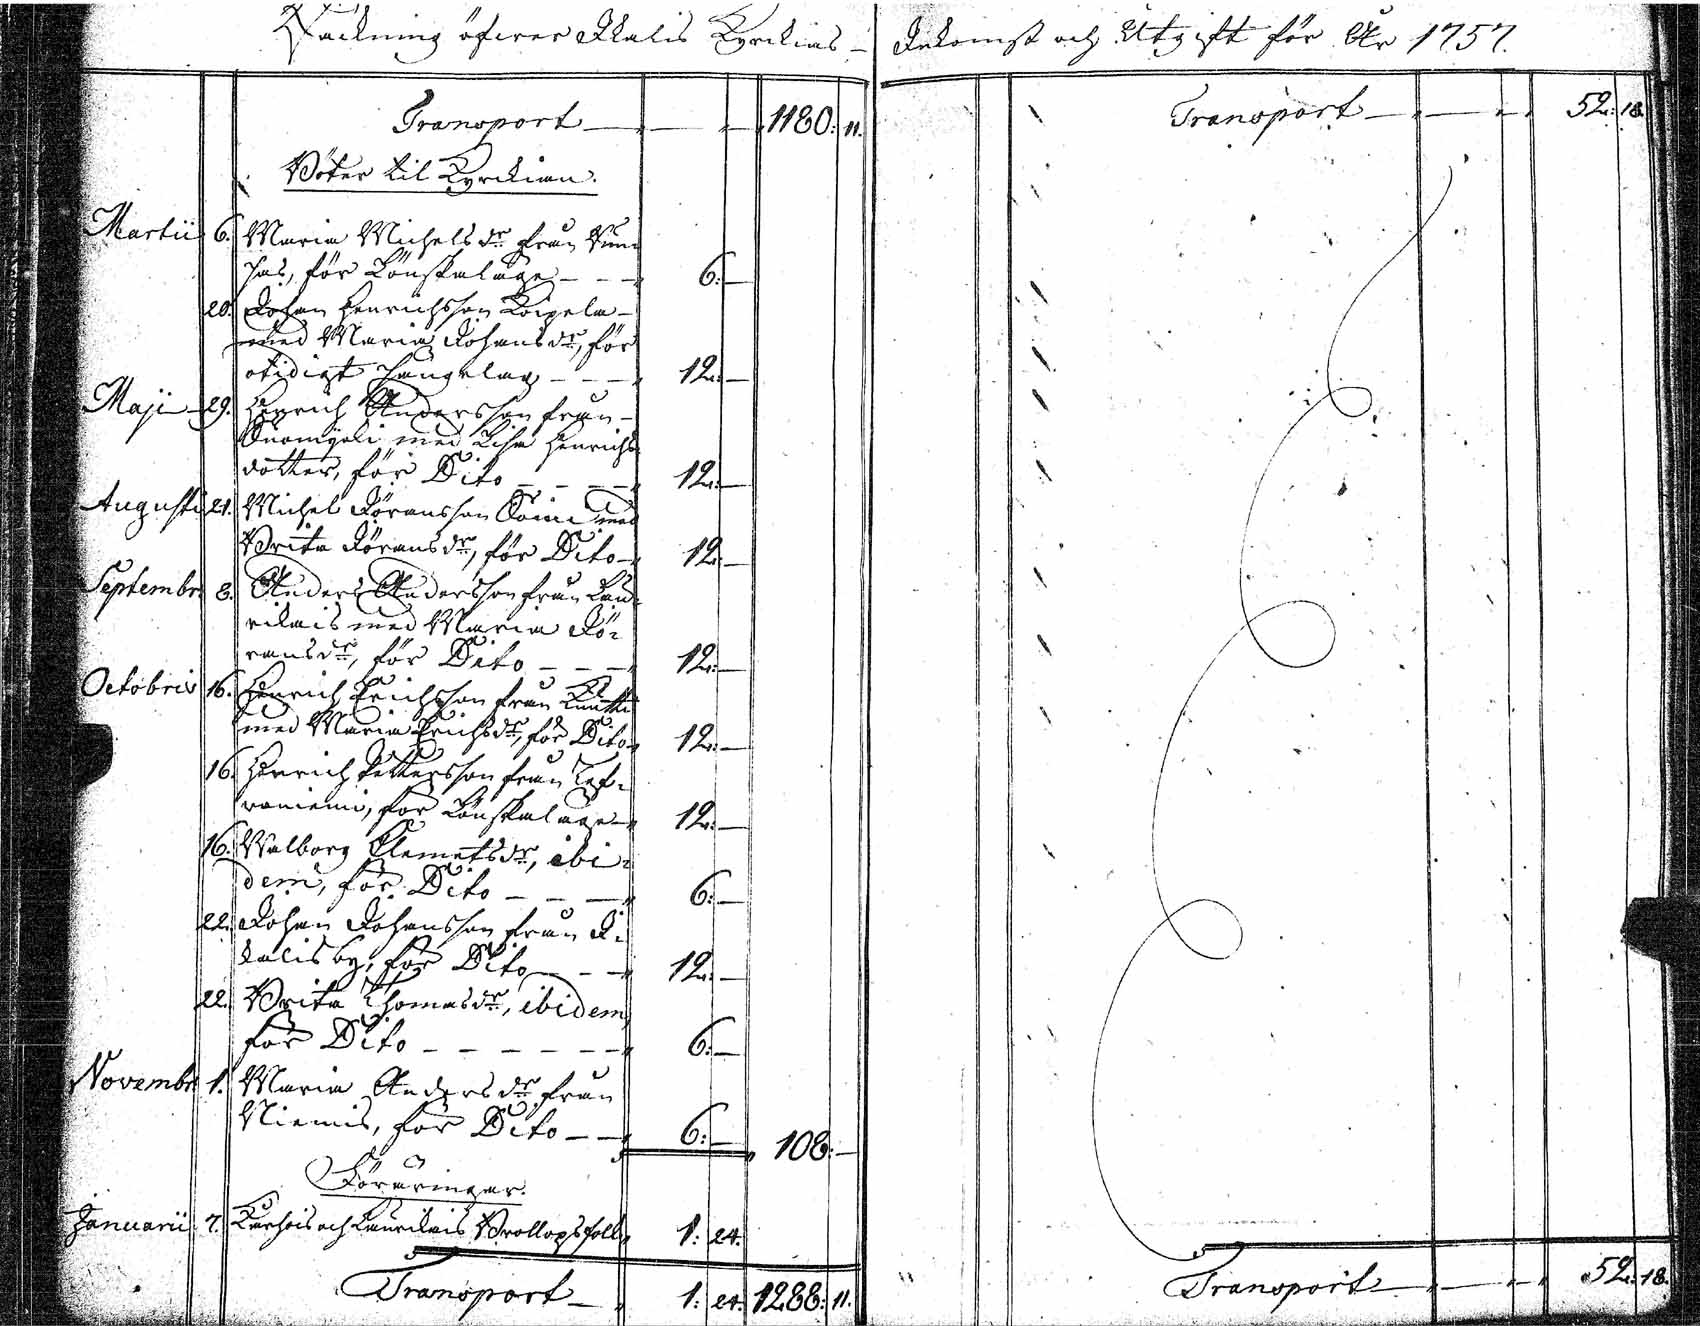 Räckning öfwer Ikalis Kyrckias – Inkomst och Utgift för År 1757.
Transport — 1180: 11.
Böter til Kyrckian.
Martii 6. Maria Michels dr från
för Lönskaläge – – – 6: —
20. Johan Henrichsson Koipela
med Maria Johans dr, för
otidigt sängelag – – – 12: —
Maji – 29. Henrich Andersson från
med Lisa Henrichs
dotter, för Dito – – – 12: —
Augusti 21. Michel Jöransson med
Brita Jörans dr, för Dito 12: —
Septembr. 8. Anders Andersson från Lau-
rikais med Maria Jö-
rans dr, för Dito – – – 12: —
Octobris 16. Henrich Erichsson från
med Maria Erichs dr, för Dito 12: —
16. Henrich Pettersson från Tef-
vaniemi, för Lönskaläge 12: —
16. Walborg Clemets dr, ibi-
dem, för Dito – – – 6: —
22. Johan Johansson från I-
kalis by, för Dito – – – 12: —
22. Brita Thomas dr, ibidem,
för Dito – – – – – – 6: —
Novembr. 1. Maria Anders dr från
Niemis, för Dito – – 6: — 108: —
Föräringar.
Januarii 7. och Laurikais Bröllopsfolk 1: 24.
Transport – 1: 24. 1288: 11.
Transport — 52: 18.
Transport — 52: 18.